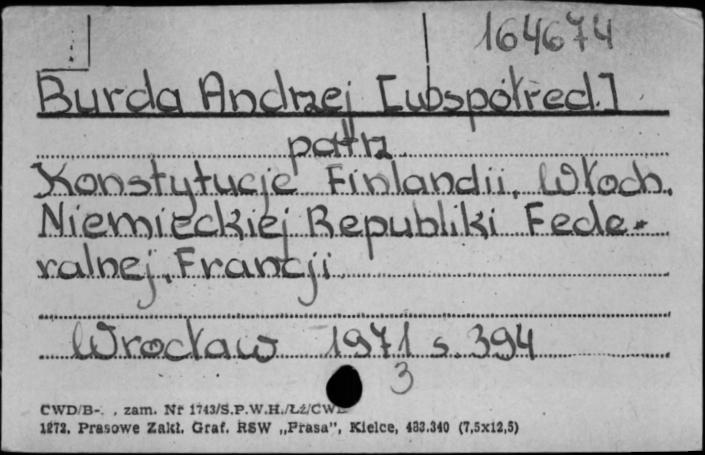 164674
Burda Andrzej [współred.]
patrz
Konstytucje Finlandii, Włoch,
Niemieckiej Republiki Fede-
ralnej, Francji
Wrocław 1971 s. 394
3
CWD/B- , zam. Nr 1743/S.P.W.H./Łź/CWD
1272. Prasowe Zakł. Graf. RSW „Prasa”, Kielce, 483.340 (7,5x12,5)